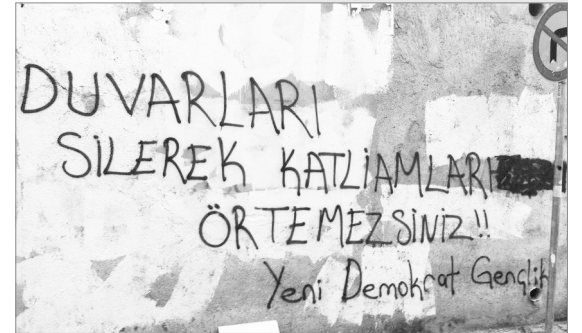 DUVARLARI
SİLEREK KATLİAMLARI
ÖRTEMEZSİNİZ!!
Yeni Demokrat Gençlik